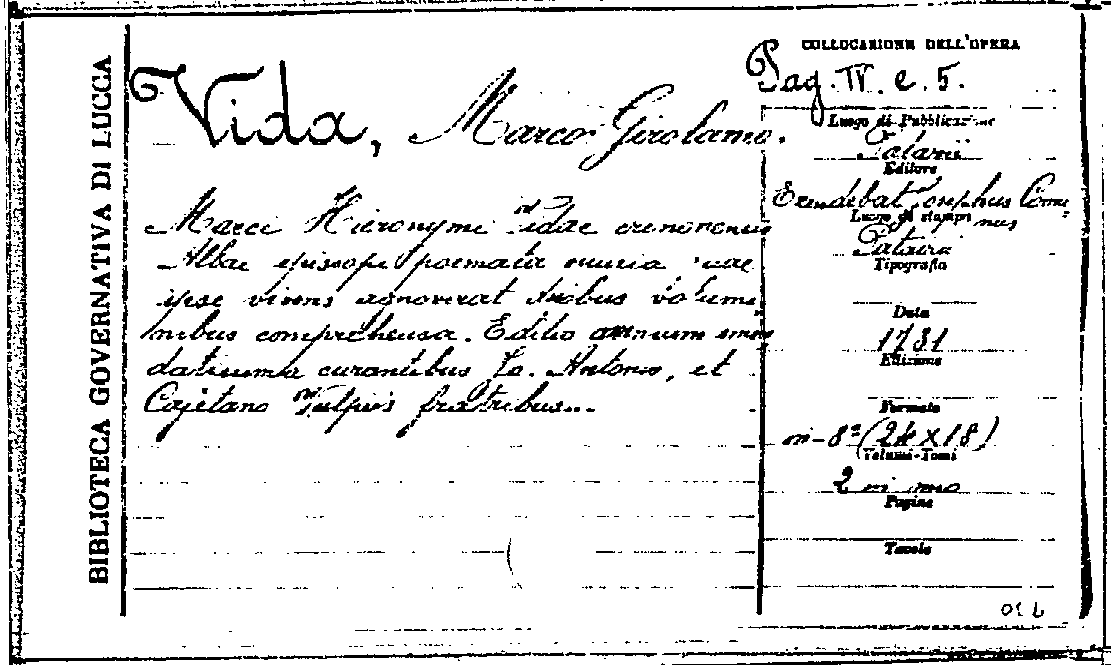 BIBLIOTECA GOVERNATIVA DI LUCCA
Vida, Marco Girolamo.
Marci Hieronymi Vidae cremonensis
Albae episcopi poemata omnia quae
ipse vivens agnoverat duobus volumi
nibus comprehensa. Editio omnium emen
datissima curantibus Jo. Antonio, et
Cajetano Vulpiis fratribus...
COLLOCAZIONE DELL'OPERA
Pag. IV. e. 5.
Luogo di Pubblicazione
Patavii
Editore
Excudebat Josephus Comi
nus
Luogo di stampa
Patavii
Tipografia
Data
1731
Edizione
Formato
in-8° (24 x 18)
Volumi-Tomi
2 in uno
Pagine
Tavole